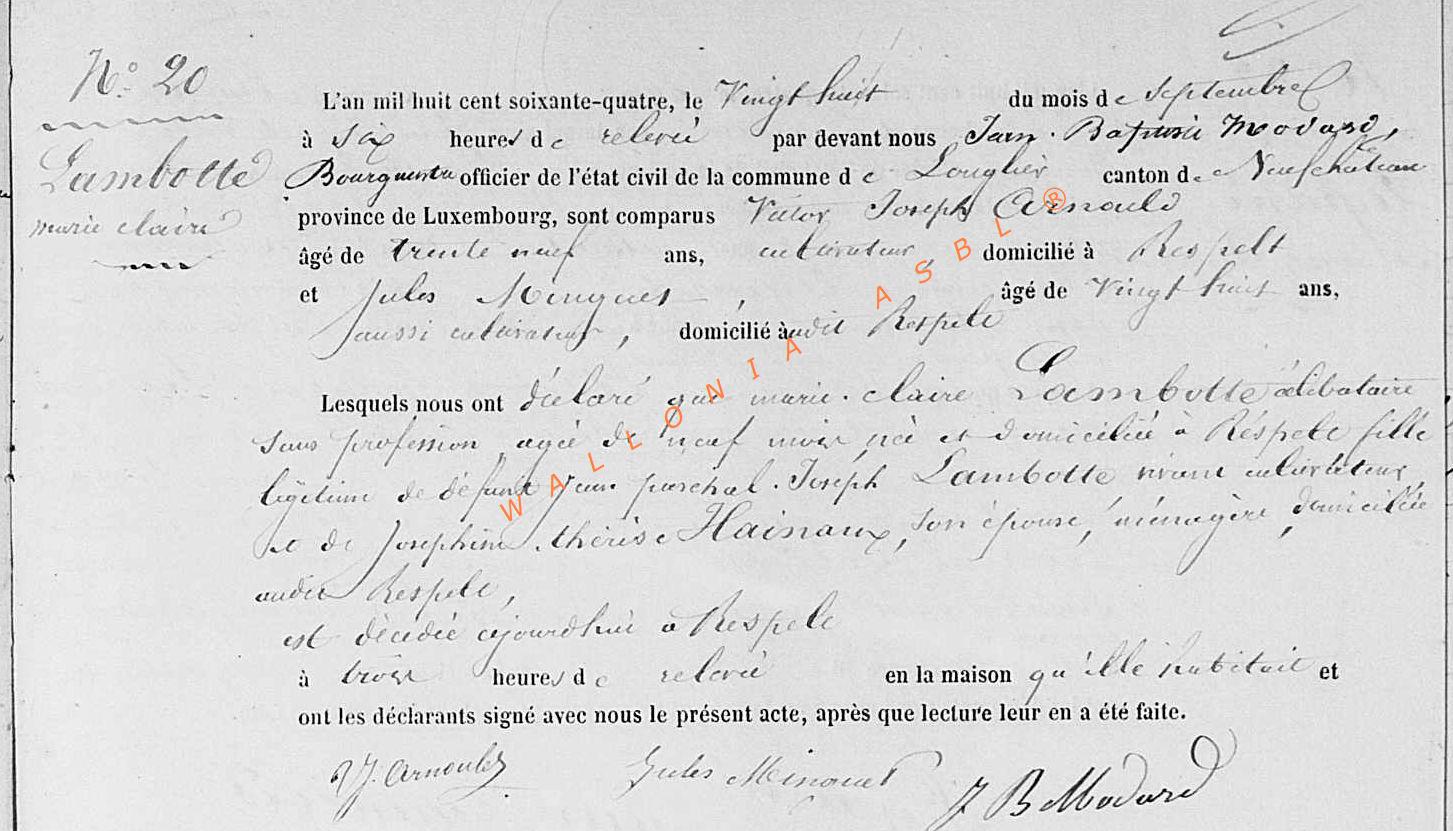 N° 20
Lambotte
marie claire
L'an mil huit cent soixante-quatre, le Vingt huit du mois de septembre
à six heures de relevée par devant nous Jean-Baptiste Modard,
Bourgmestre officier de l'état civil de la commune de Longlier canton de Neufchâteau
province de Luxembourg, sont comparus Victor Joseph Arnould
âgé de trente neuf ans, cultivateur, domicilié à Respelt
et Jules Minguet, âgé de Vingt huit ans,
aussi cultivateur, domicilié audit Respelt
Lesquels nous ont déclaré que marie-claire Lambotte célibataire
sans profession agée de neuf mois née et domiciliée à Respelt fille
légitime de défunt Jean paschal-Joseph Lambotte vivant cultivateur,
et de Joséphine-thérèse Hainaux, son épouse, ménagère, domiciliée
audit Respelt,
est décédée ajourdhui à Respelt
à trois heures de relevée en la maison qu'elle habitait et
ont les déclarants signé avec nous le présent acte, après que lecture leur en a été faite.
VJ. Arnould Jules Minguet J B Modard
WALLONIA ASBL ®